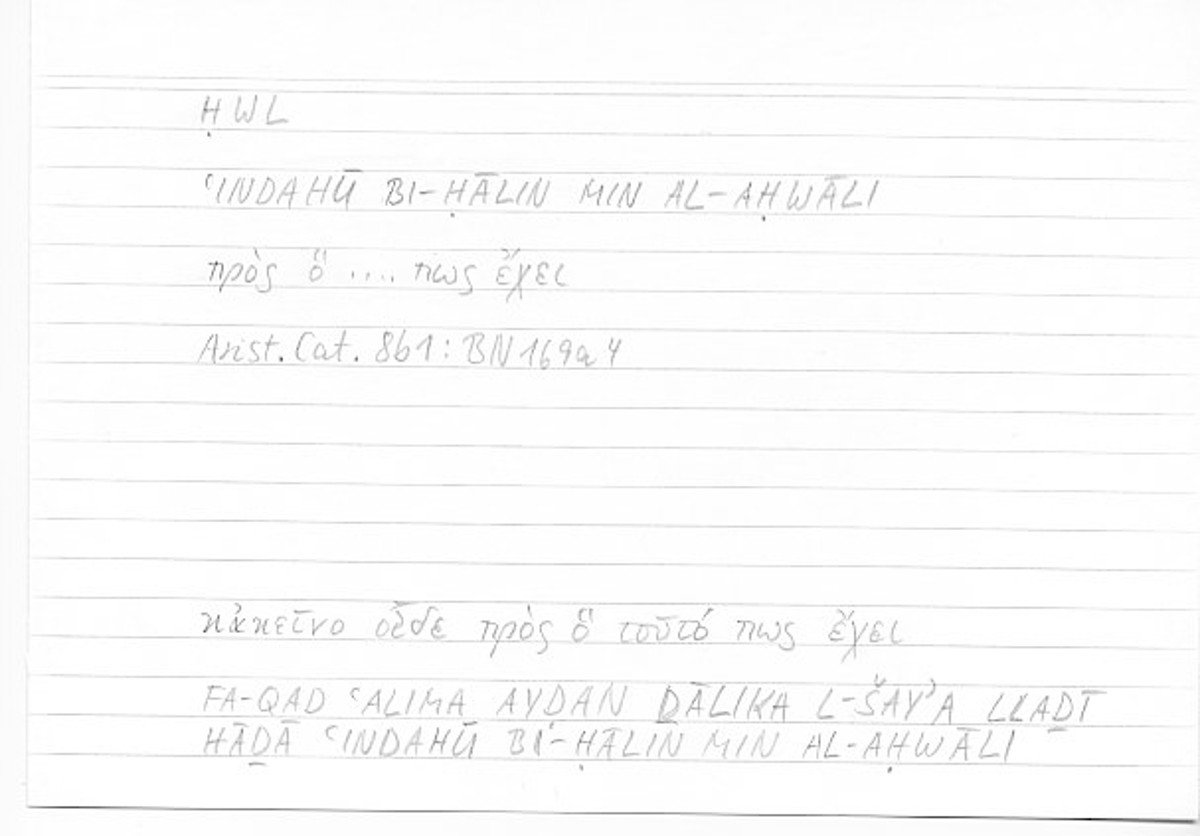 ḤWL
ʿINDAHŪ BI-ḤĀLIN MIN AL-AḤWĀLI
πρὸς ὅ .... πως ἔχει
Arist. Cat. 8b1: BN 169a4
κἀκεῖνο οἶδε πρὸς ὃ τοῦτό πως ἔχει
FA-QAD ʿALIMA AYDAN ḎĀLIKA L-ŠAYʾA LLAḎĪ
HĀḎĀ ʿINDAHŪ BI-ḤĀLIN MIN AL-AḤWĀLI